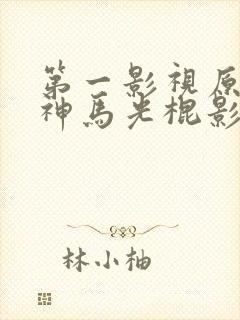 第一影视原
神马光棍影
林小柚